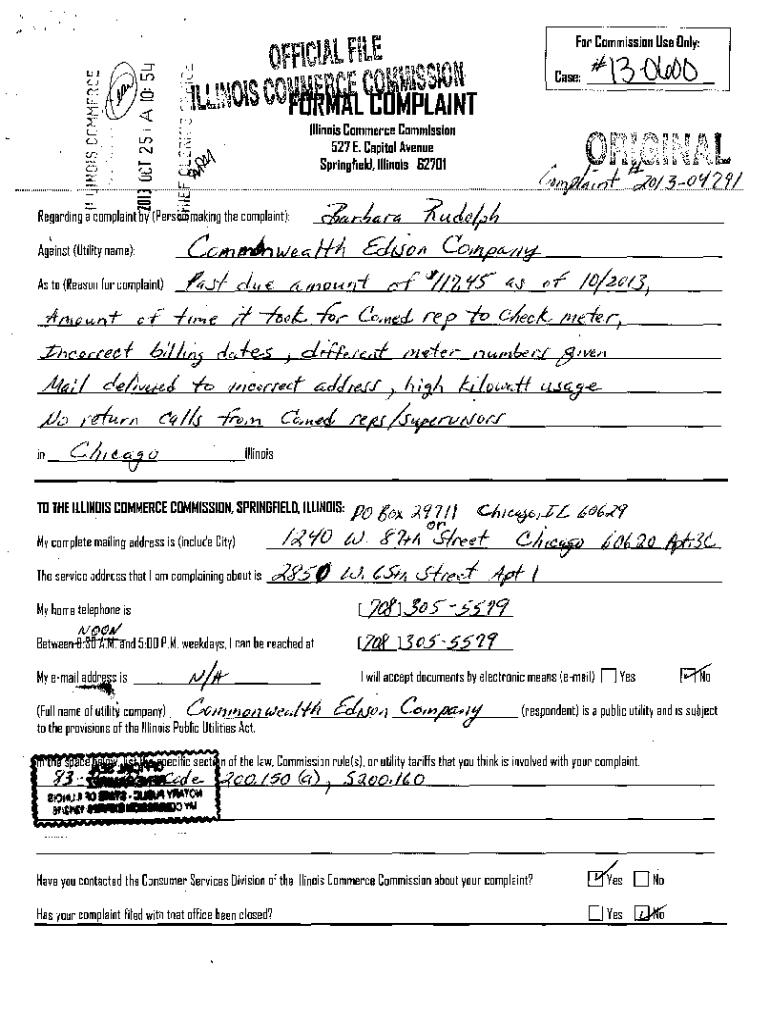 OFFICIAL FILE
ILLINOIS COMMERCE COMMISSION
For Commission Use Only:
Case: #13-0600
ILLINOIS COMMERCE
2013 OCT 25 A 10: 54
CHIEF CLERK'S OFFICE
FORMAL COMPLAINT
Illinois Commerce Commission
527 E. Capitol Avenue
Springfield, Illinois 62701
ORIGINAL
Complaint # 2013-04291
Regarding a complaint by (Person making the complaint): Barbara Rudolph
Against (Utility name): Commonwealth Edison Company
As to (Reason for complaint) Past due amount of $117.45 as of 10/2013,
Amount of time it took for Comed rep to check meter,
Incorrect billing dates, different meter numbers given
Mail delivered to incorrect address, high kilowatt usage
No return calls from Comed reps/supervisors
in Chicago Illinois
TO THE ILLINOIS COMMERCE COMMISSION, SPRINGFIELD, ILLINOIS: PO Box 29711 Chicago, IL 60629
or
My complete mailing address is (include City) 1240 W. 87th Street Chicago 60620 Apt 3C
The service address that I am complaining about is 2850 W. 65th Street Apt 1
My home telephone is [708] 305-5579
NOON
Between 8:30 A.M. and 5:00 P.M. weekdays, I can be reached at [708] 305-5579
My e-mail address is N/A I will accept documents by electronic means (e-mail) Yes No
(Full name of utility company) Commonwealth Edison Company (respondent) is a public utility and is subject
to the provisions of the Illinois Public Utilities Act.
In the space below, list the specific section of the law, Commission rule(s), or utility tariffs that you think is involved with your complaint.
83- Code 200.150 (a), S200.160
NOTARY PUBLIC - STATE OF ILLINOIS
MY COMMISSION EXPIRES
Have you contacted the Consumer Services Division of the Illinois Commerce Commission about your complaint? Yes No
Has your complaint filed with that office been closed? Yes No